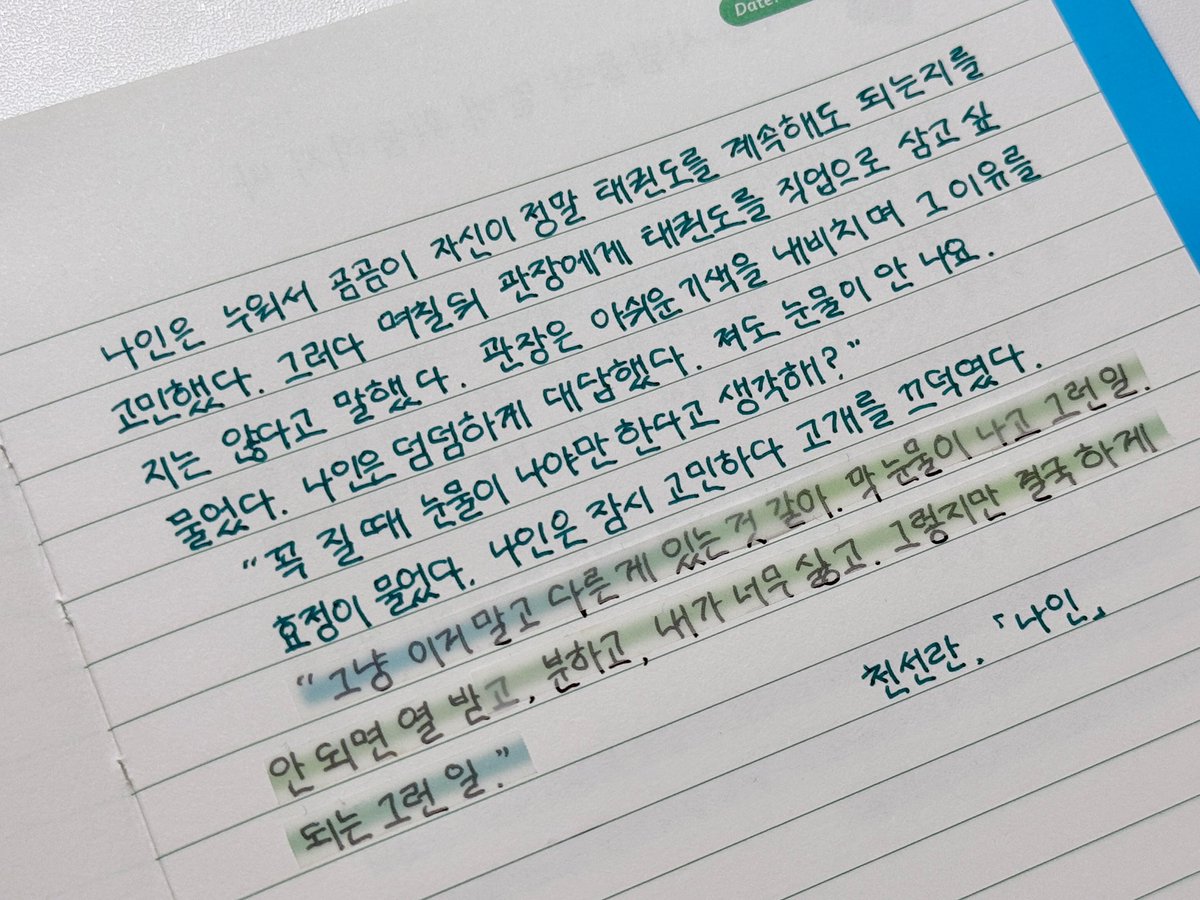 Date.
나인은 누워서 곰곰이 자신이 정말 태권도를 계속해도 되는지를
고민했다. 그러다 며칠 뒤 관장에게 태권도를 직업으로 삼고 싶
지는 않다고 말했다. 관장은 아쉬운 기색을 내비치며 그 이유를
물었다. 나인은 덤덤하게 대답했다. 져도 눈물이 안 나요.
"꼭 질 때 눈물이 나야만 한다고 생각해?"
효정이 물었다. 나인은 잠시 고민하다 고개를 끄덕였다.
"그냥 이거 말고 다른 게 있는 것 같아. 막 눈물이 나고 그런 일.
안 되면 열 받고, 분하고, 내가 너무 싫고. 그렇지만 결국 하게
되는 그런 일."
천선란, 「나인」